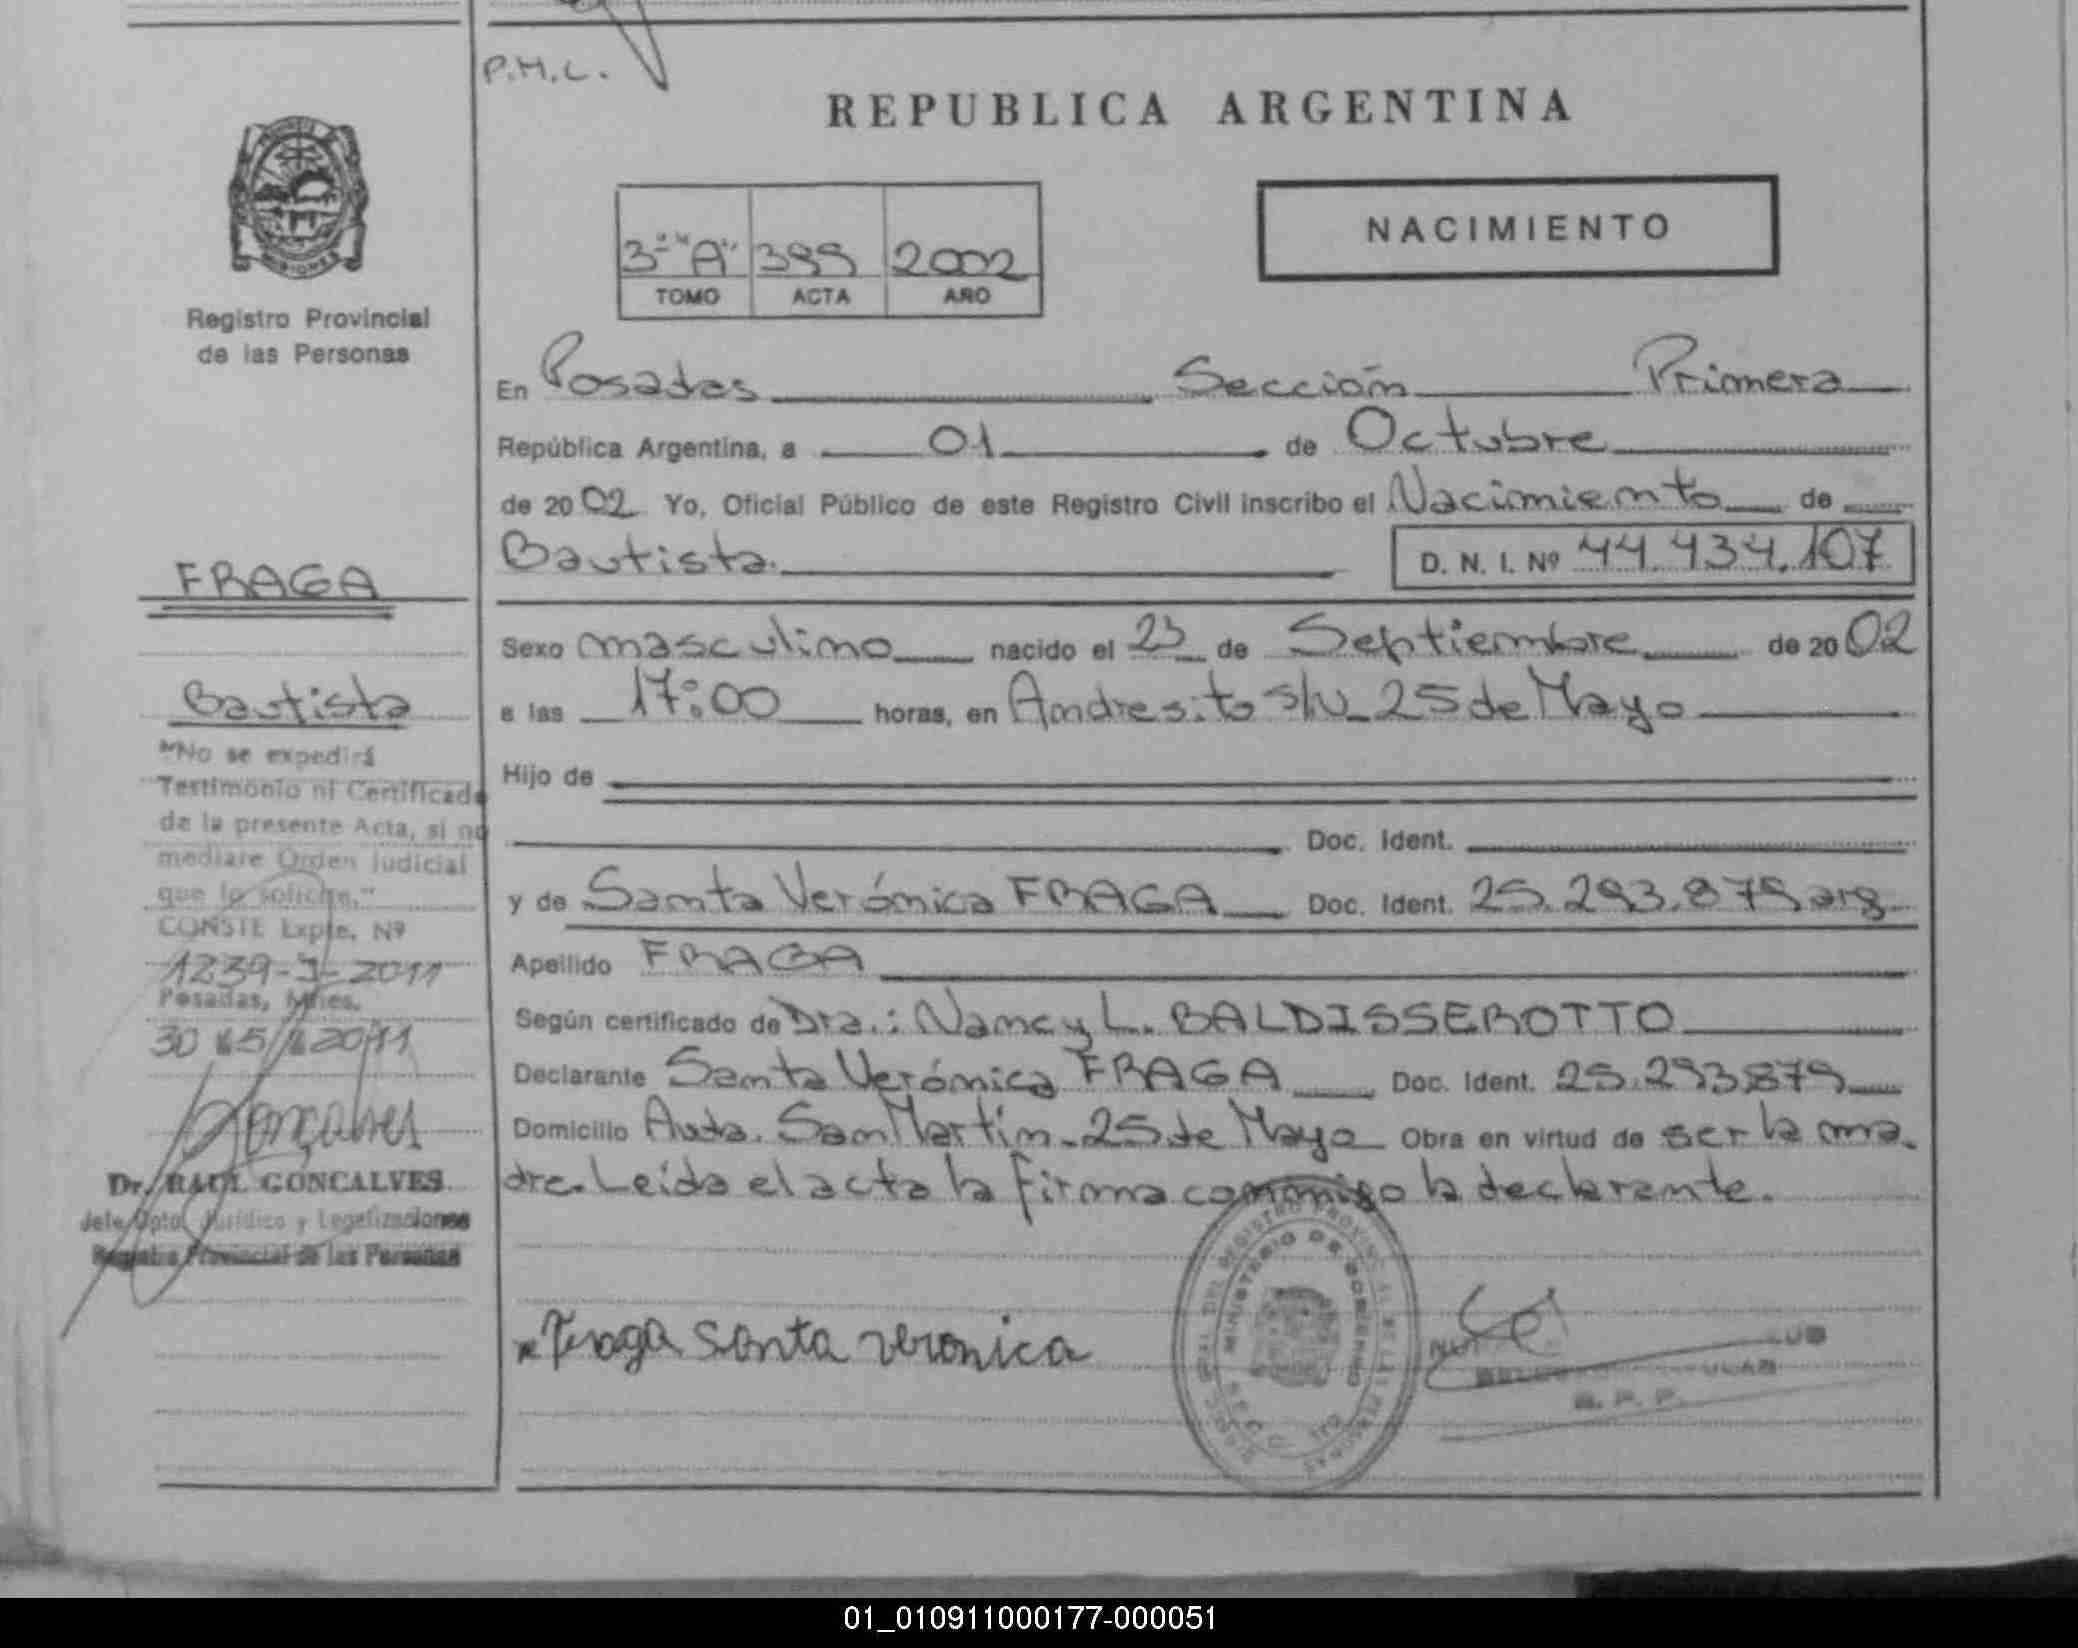 P.M.L.
REPUBLICA ARGENTINA
NACIMIENTO
3º "A" 399 2002
TOMO ACTA AÑO
MISIONES
Registro Provincial
de las Personas
En Posadas Sección Primera
República Argentina, a 01 de Octubre
de 2002 Yo, Oficial Público de este Registro Civil inscribo el Nacimiento de
Bautista. D. N. I. Nº 44.434.107
FRAGA
Sexo masculino nacido el 23 de Septiembre de 2002
Bautista
a las 17:00 horas, en Andresito s/n_ 25 de Mayo
"No se expedirá
Testimonio ni Certificado
de la presente Acta, si no
mediare Orden Judicial
que lo solicite."
CONSTE Expte. Nº
1239-J-2011
Posadas, Mnes.
30 2011
Goncalves
Dr. RAUL GONCALVES
Jefe Dpto. Jurídico y Legalizaciones
Registro Provincial de las Personas
Hijo de
Doc. Ident.
y de Santa Verónica FRAGA Doc. Ident. 25.293.879 arg
Apellido FRAGA
Según certificado de Dra.: Nancy L. BALDISSEROTTO
Declarante Santa Verónica FRAGA Doc. Ident. 25.293879
Domicilio Avda. San Martín-25 de Mayo Obra en virtud de ser la ma-
dre. Leída el acta la firma conmigo la declarante.
Fraga santa veronica
MINISTERIO DE GOBIERNO
01_010911000177-000051